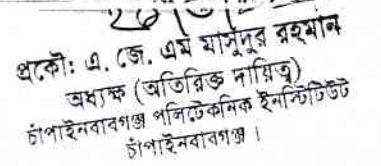 প্রকৌ: এ. জে. এম মাসুদুর রহমান
অধ্যক্ষ (অতিরিক্ত দায়িত্ব)
চাঁপাইনবাবগঞ্জ পলিটেকনিক ইনস্টিটিউট
চাঁপাইনবাবগঞ্জ।